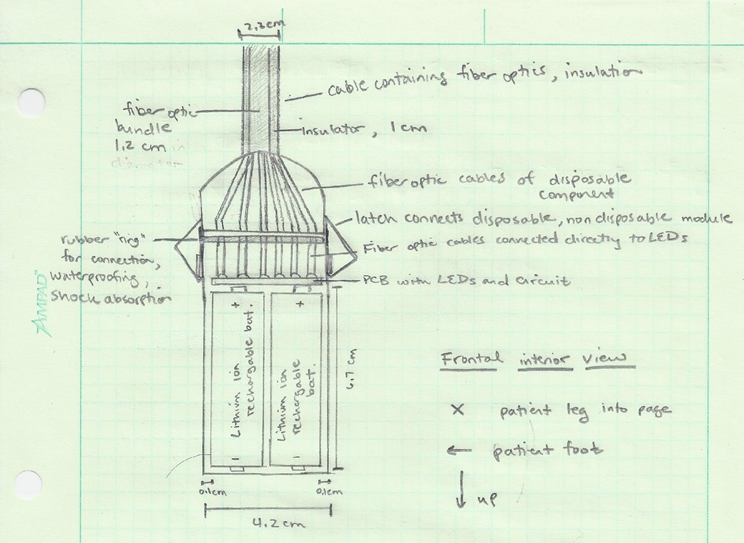 2.3cm
cable containing fiber optics, insulation
fiber optic
bundle
1.2 cm in
insulator, 1cm
fiber optic cables of disposable
component
latch connects disposable, non disposable module
rubber "ring"
for connection,
waterproofing,
shock absorption
Fiber optic cables connected directly to LEDs
PCB with LEDs and circuit
AMPAD™
+
+
Lithium Ion
rechargable bat.
Lithium Ion
rechargable
bat.
-
-
6.7 cm
0.1cm
0.1cm
4.2cm
Frontal interior view
X patient leg into page
← patient foot
↓ up